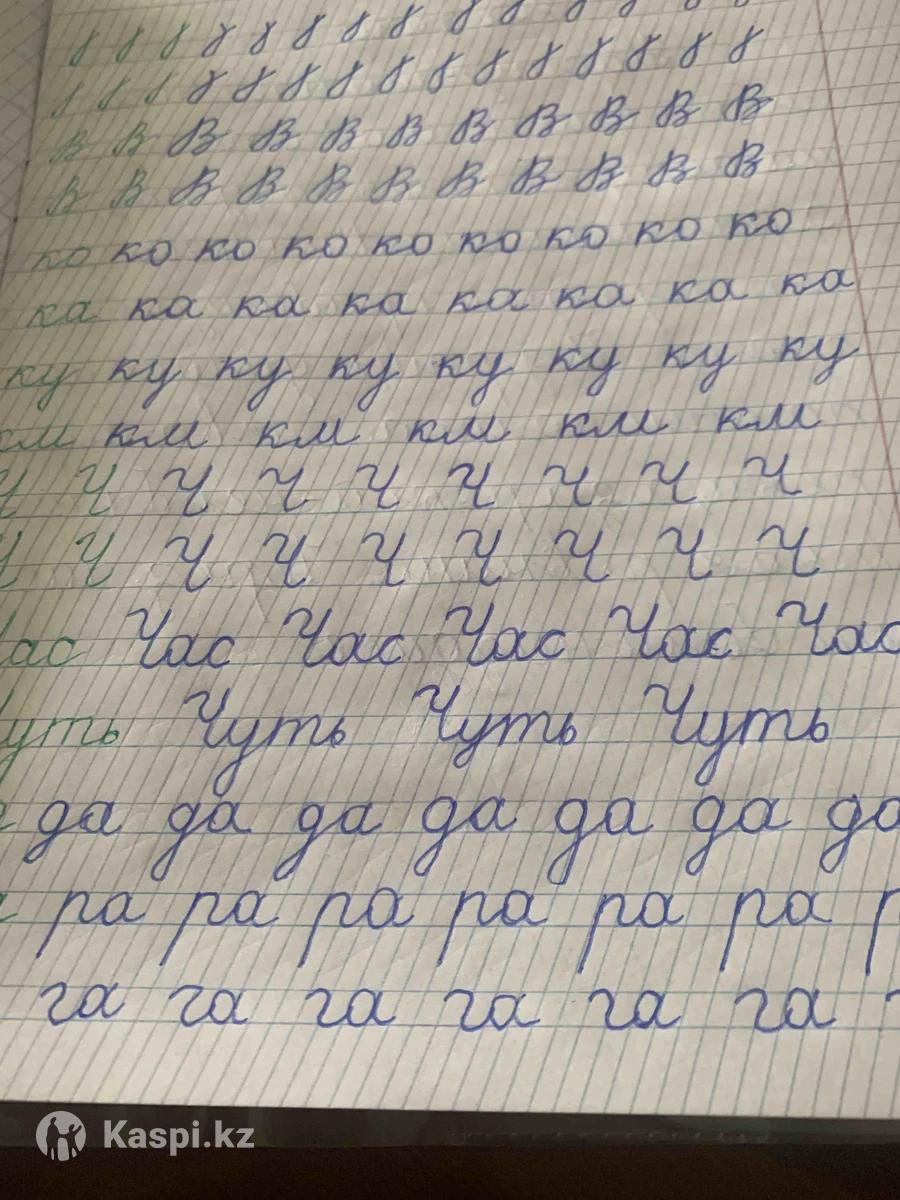 В В В В В В В В В В В
В В В В В В В В В В В
ко ко ко ко ко ко ко ко ко
ка ка ка ка ка ка ка ка
ку ку ку ку ку ку ку ку
км км км км км км
Ч Ч Ч Ч Ч Ч Ч Ч Ч
Ч Ч Ч Ч Ч Ч Ч Ч Ч
Час Час Час Час Час Час
Чуть Чуть Чуть Чуть
да да да да да да да
ра ра ра ра ра ра р
га га га га га га
Kaspi.kz